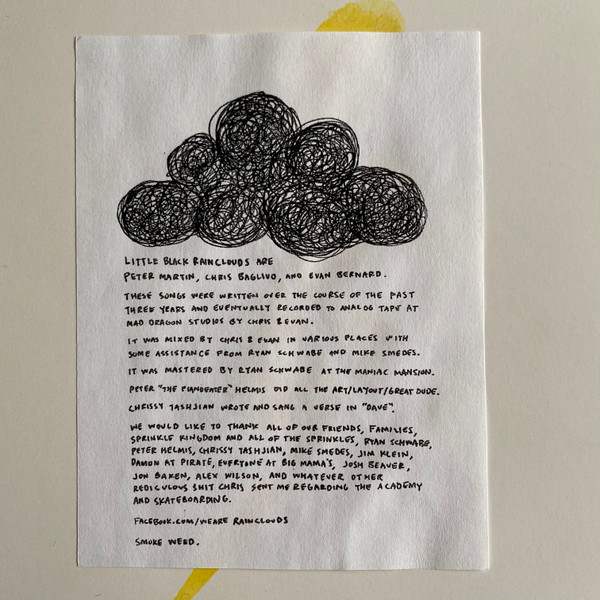 LITTLE BLACK RAINCLOUDS ARE
PETER MARTIN, CHRIS BAGLIVO, AND EVAN BERNARD.
THESE SONGS WERE WRITTEN OVER THE COURSE OF THE PAST
THREE YEARS AND EVENTUALLY RECORDED TO ANALOG TAPE AT
MAD DRAGON STUDIOS BY CHRIS & EVAN.
IT WAS MIXED BY CHRIS & EVAN IN VARIOUS PLACES WITH
SOME ASSISTANCE FROM RYAN SCHWABE AND MIKE SMEDES.
IT WAS MASTERED BY RYAN SCHWABE AT THE MANIAC MANSION.
PETER "THE PLANDEATER" HELMIS DID ALL THE ART/LAYOUT/GREAT DUDE.
CHRISSY TASHJIAN WROTE AND SANG A VERSE IN "DAVE".
WE WOULD LIKE TO THANK ALL OF OUR FRIENDS, FAMILIES,
SPRINKLE KINGDOM AND ALL OF THE SPRINKLES, RYAN SCHWABE,
PETER HELMIS, CHRISSY TASHJIAN, MIKE SMEDES, JIM KLEIN,
DAMON AT PIRATE, EVERYONE AT BIG MAMA'S, JOSH BEAVER,
JON BAKEN, ALEX WILSON, AND WHATEVER OTHER
REDICULOUS SHIT CHRIS SENT ME REGARDING THE ACADEMY
AND SKATEBOARDING.
FACEBOOK.COM/WEARE RAINCLOUDS
SMOKE WEED.